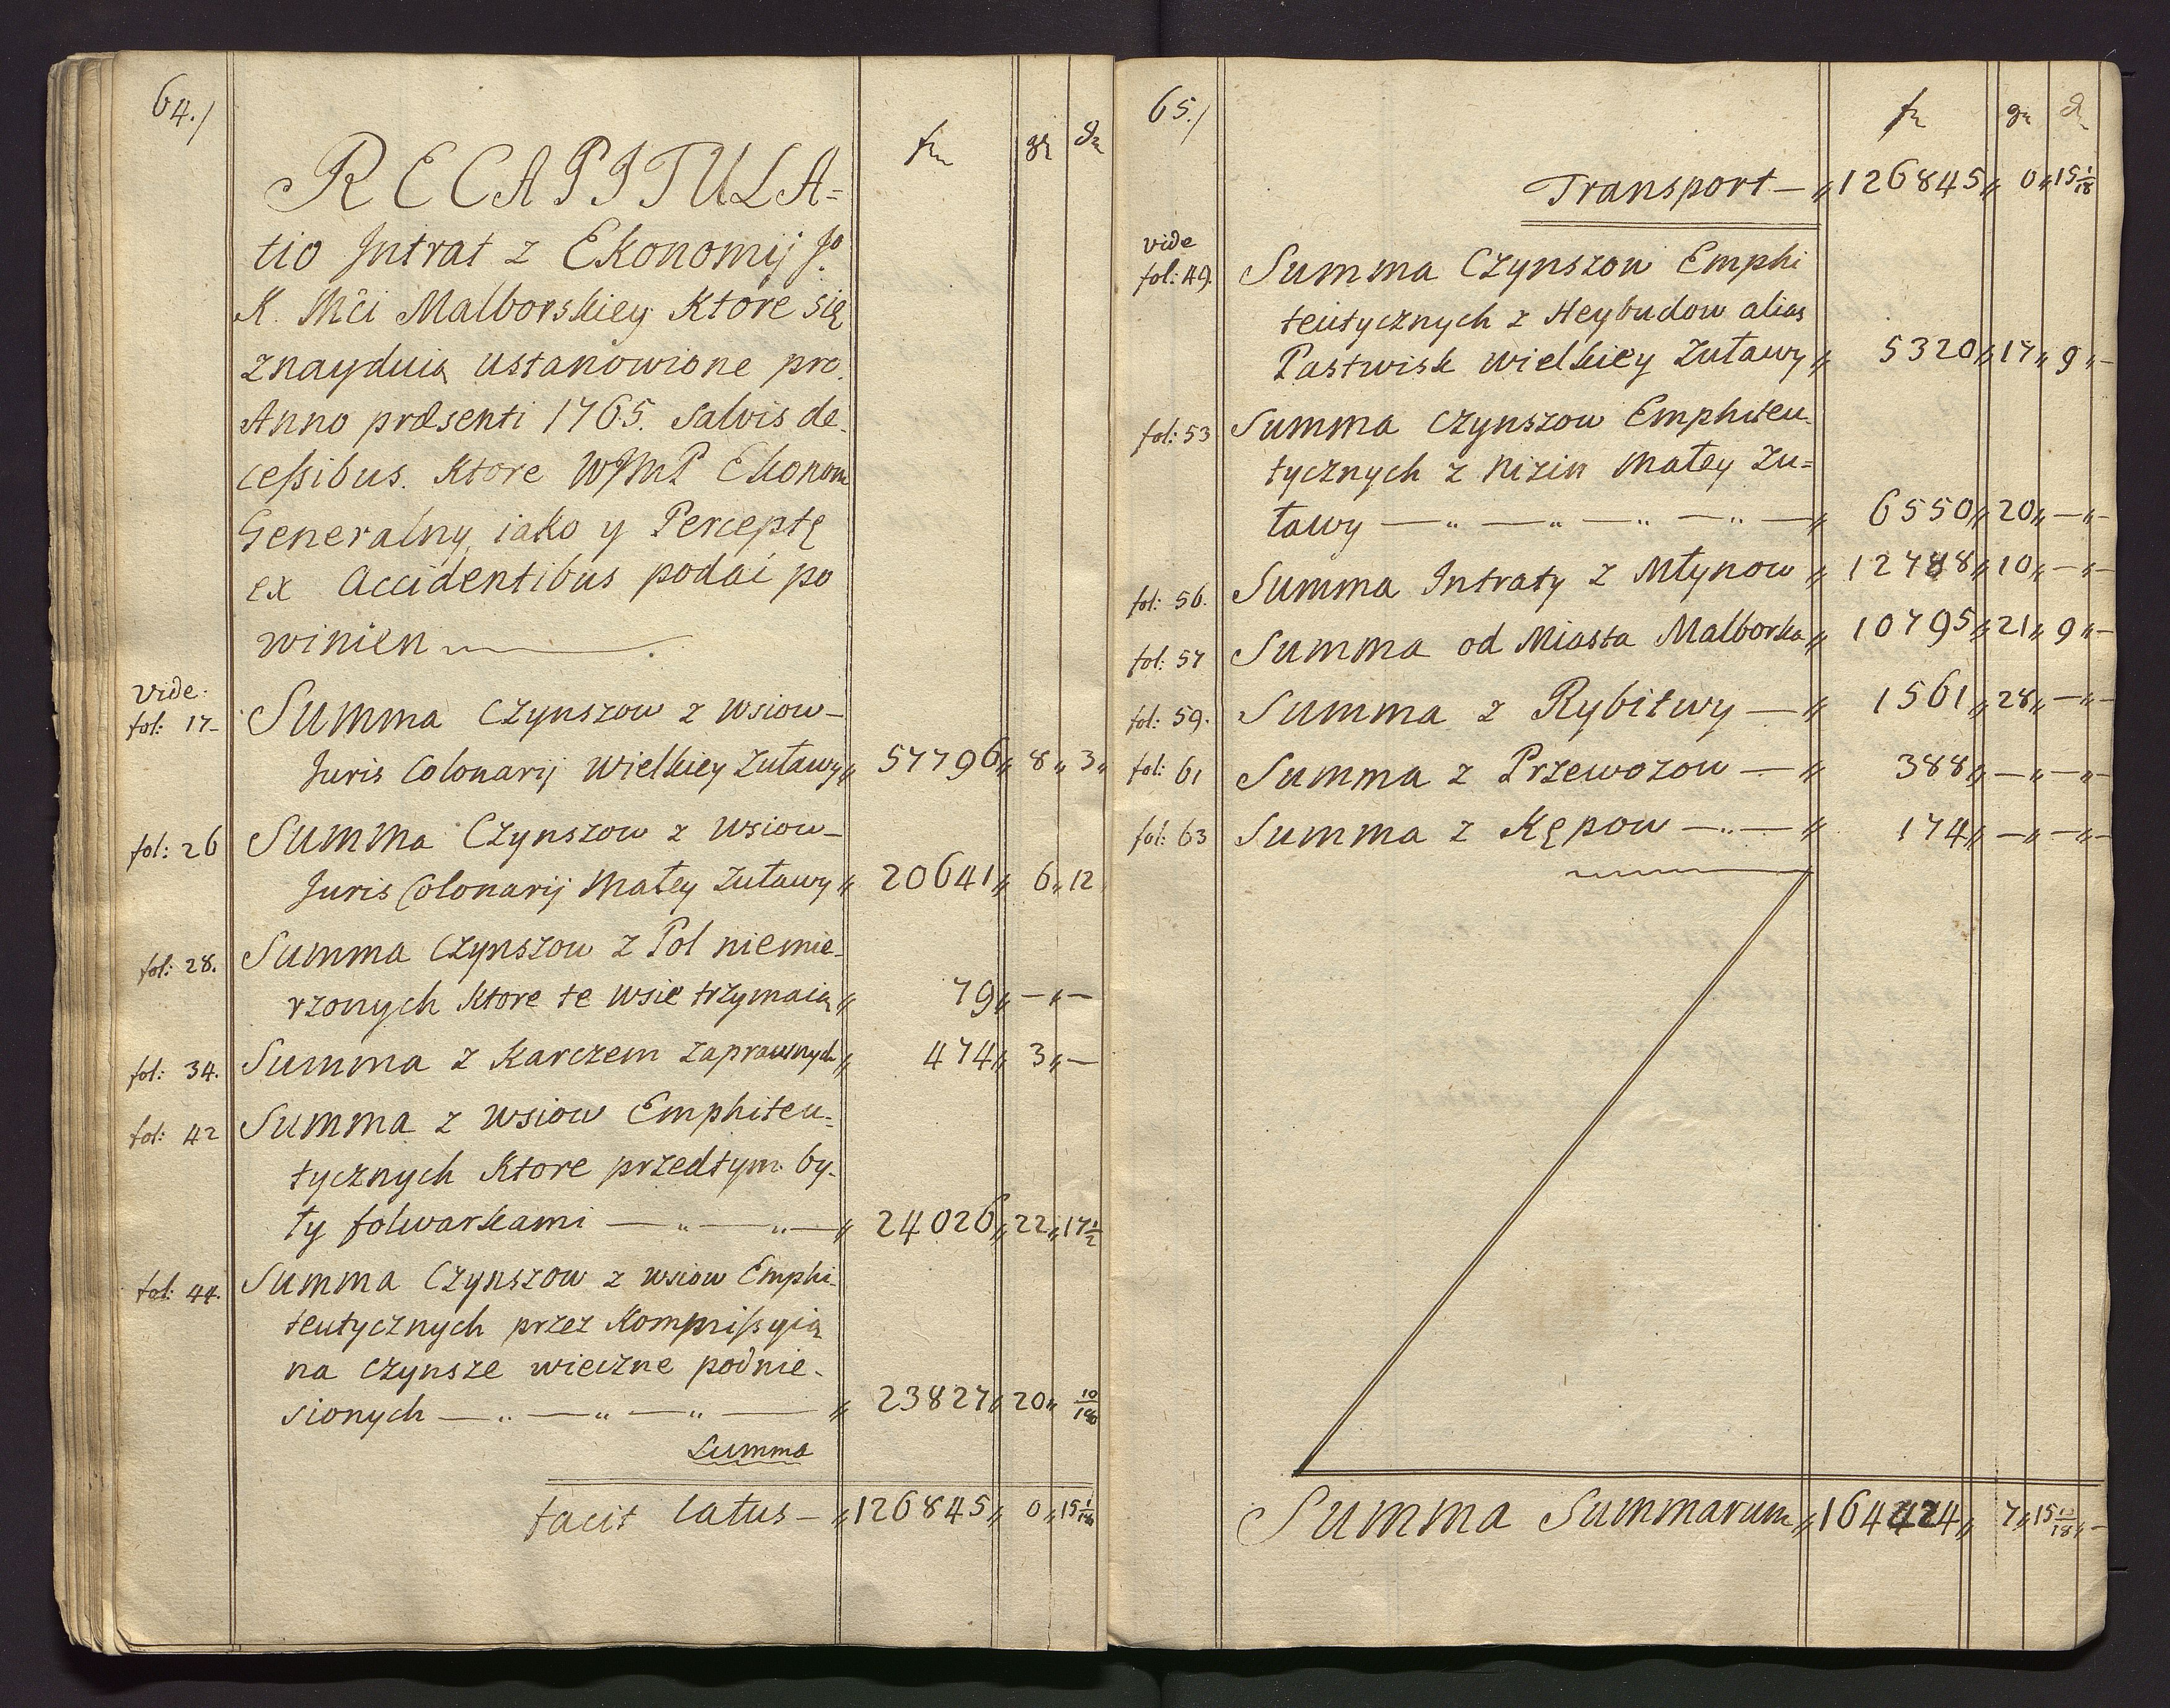 64./
fn gn dn
RECAPITULA=
tio Jntrat z Ekonomij Jo.
K. Mci Malborskiey Ktore się
znayduią ustanowione pro.
Anno præsenti 1765. Salvis de-
cessibus. Ktore WJMP Ekonom
Generalny iako y Perceptę
ex Accidentibus podać po
winien
vide:
fol: 17 Summa Czynszow z Wsiow-
Juris Colonarij Wielkiey Zuławy 57796 8 3
fol: 26 Summa Czynszow z Wsiow-
Juris Colonarij Małey Zuławy 20641 6 12
fol: 28. Summa Czynszow z Pol niemie-
rzonych Ktore te Wsie trzymaią 79 - -
fol: 34. Summa z Karczem zaprawnych 474 3 -
fol: 42 Summa z Wsiow Emphiteu-
tycznych Ktore przedtym by-
ły folwarkami 24026 22 17 1/2
fol: 44. Summa Czynszow z wsiow Emphi-
teutycznych przez Kommissyią
na czynsze wieczne podnie-
sionych 23827 20 10/18
Summa
facit latus 126845 0 15 1/18
65./
fn gn d
Transport 126845 0 15 1/18
vide
fol: 49. Summa Czynszow Emphi
teutycznych z Heybudow alias
Pastwisk wielkiey Zuławy 5320 17 9 -
fol: 53 Summa Czynszow Emphiteu-
tycznych z Nizin Małey Zu=
ławy 6550 20 - -
fol: 56. Summa Intraty z Młynow 12788 10 - -
fol: 57 Summa od Miasta Malborka 10795 21 9 -
fol: 59. Summa z Rybitwy 1561 28 - -
fol: 61 Summa z Przewozow 388 - - -
fol: 63 Summa z Kępow 174 - - -
Summa Summarum 164424 7 15 1/18 -